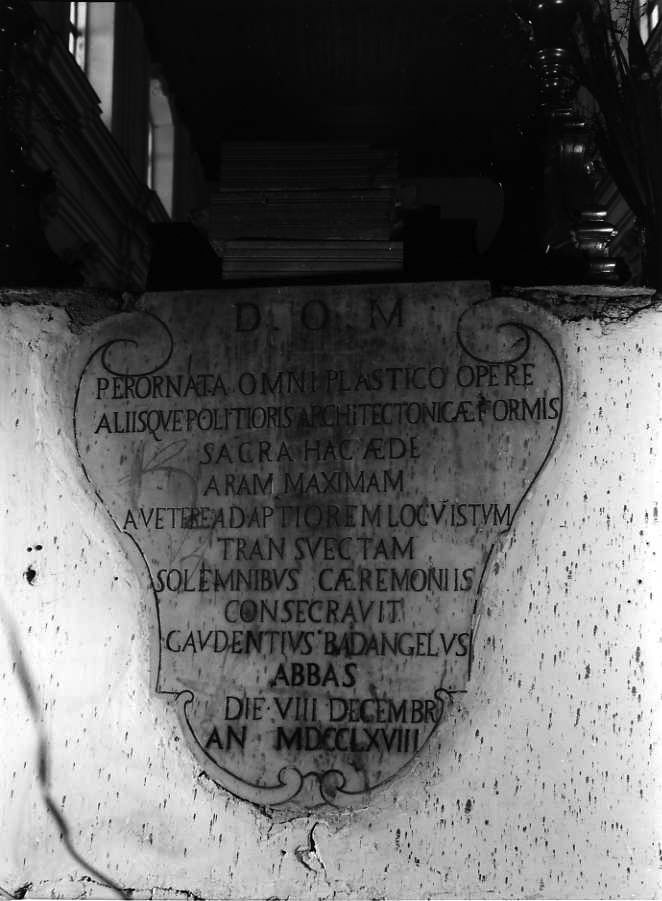 D · O · M
PERORNATA OMNI PLASTICO OPERE
ALIISQVE POLITIORIS ARCHITECTONICÆ FORMIS
SACRA HAC ÆDE
ARAM MAXIMAM
A VETERE AD APTIOREM LOCV ISTVM
TRANSVECTAM
SOLEMNIBVS CÆREMONIIS
CONSECRAVIT
GAVDENTIVS BADANGELVS
ABBAS
DIE VIII DECEMBR
AN MDCCLXVIII